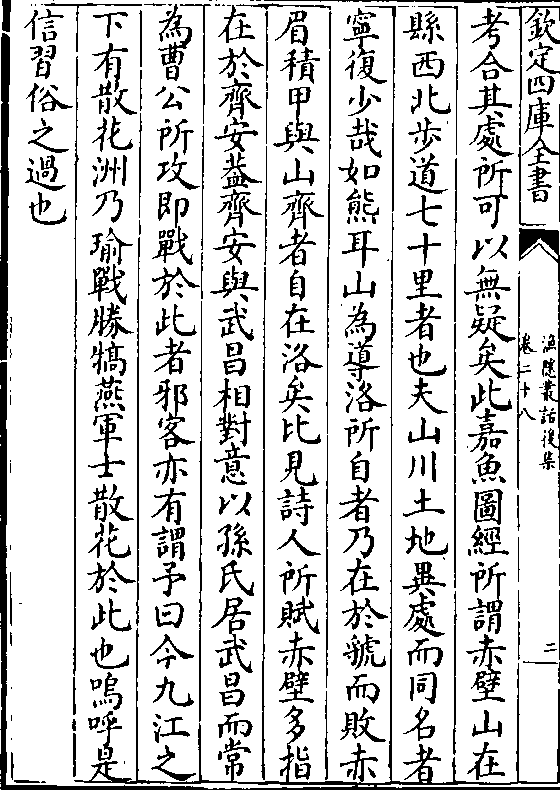 欽定四庫全書
漁隱叢話後集
卷二十八
三
考合其處所可以無疑矣此嘉魚圖經所謂赤壁山在
縣西北步道七十里者也夫山川土地異處而同名者
寧復少哉如熊耳山為導洛所自者乃在於虢而敗赤
眉積甲與山齊者自在洛矣比見詩人所賦赤壁多指
在於齊安葢齊安與武昌相對意以孫氏居武昌而常
為曹公所攻即戰於此者邪客亦有謂予曰今九江之
下有散花洲乃瑜戰勝犒燕軍士散花於此也嗚呼是
信習俗之過也